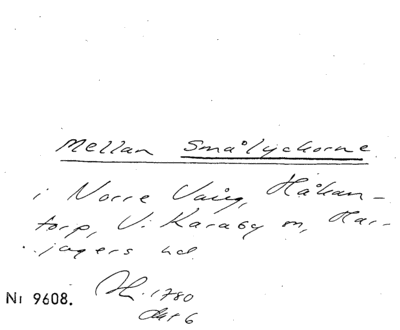 Mellan Smålyckorne
i Norre Vång, Håkan-
torp, V. Karaby sn, Har-
jagers hd.
Nr 9608.
1780
Akt 6